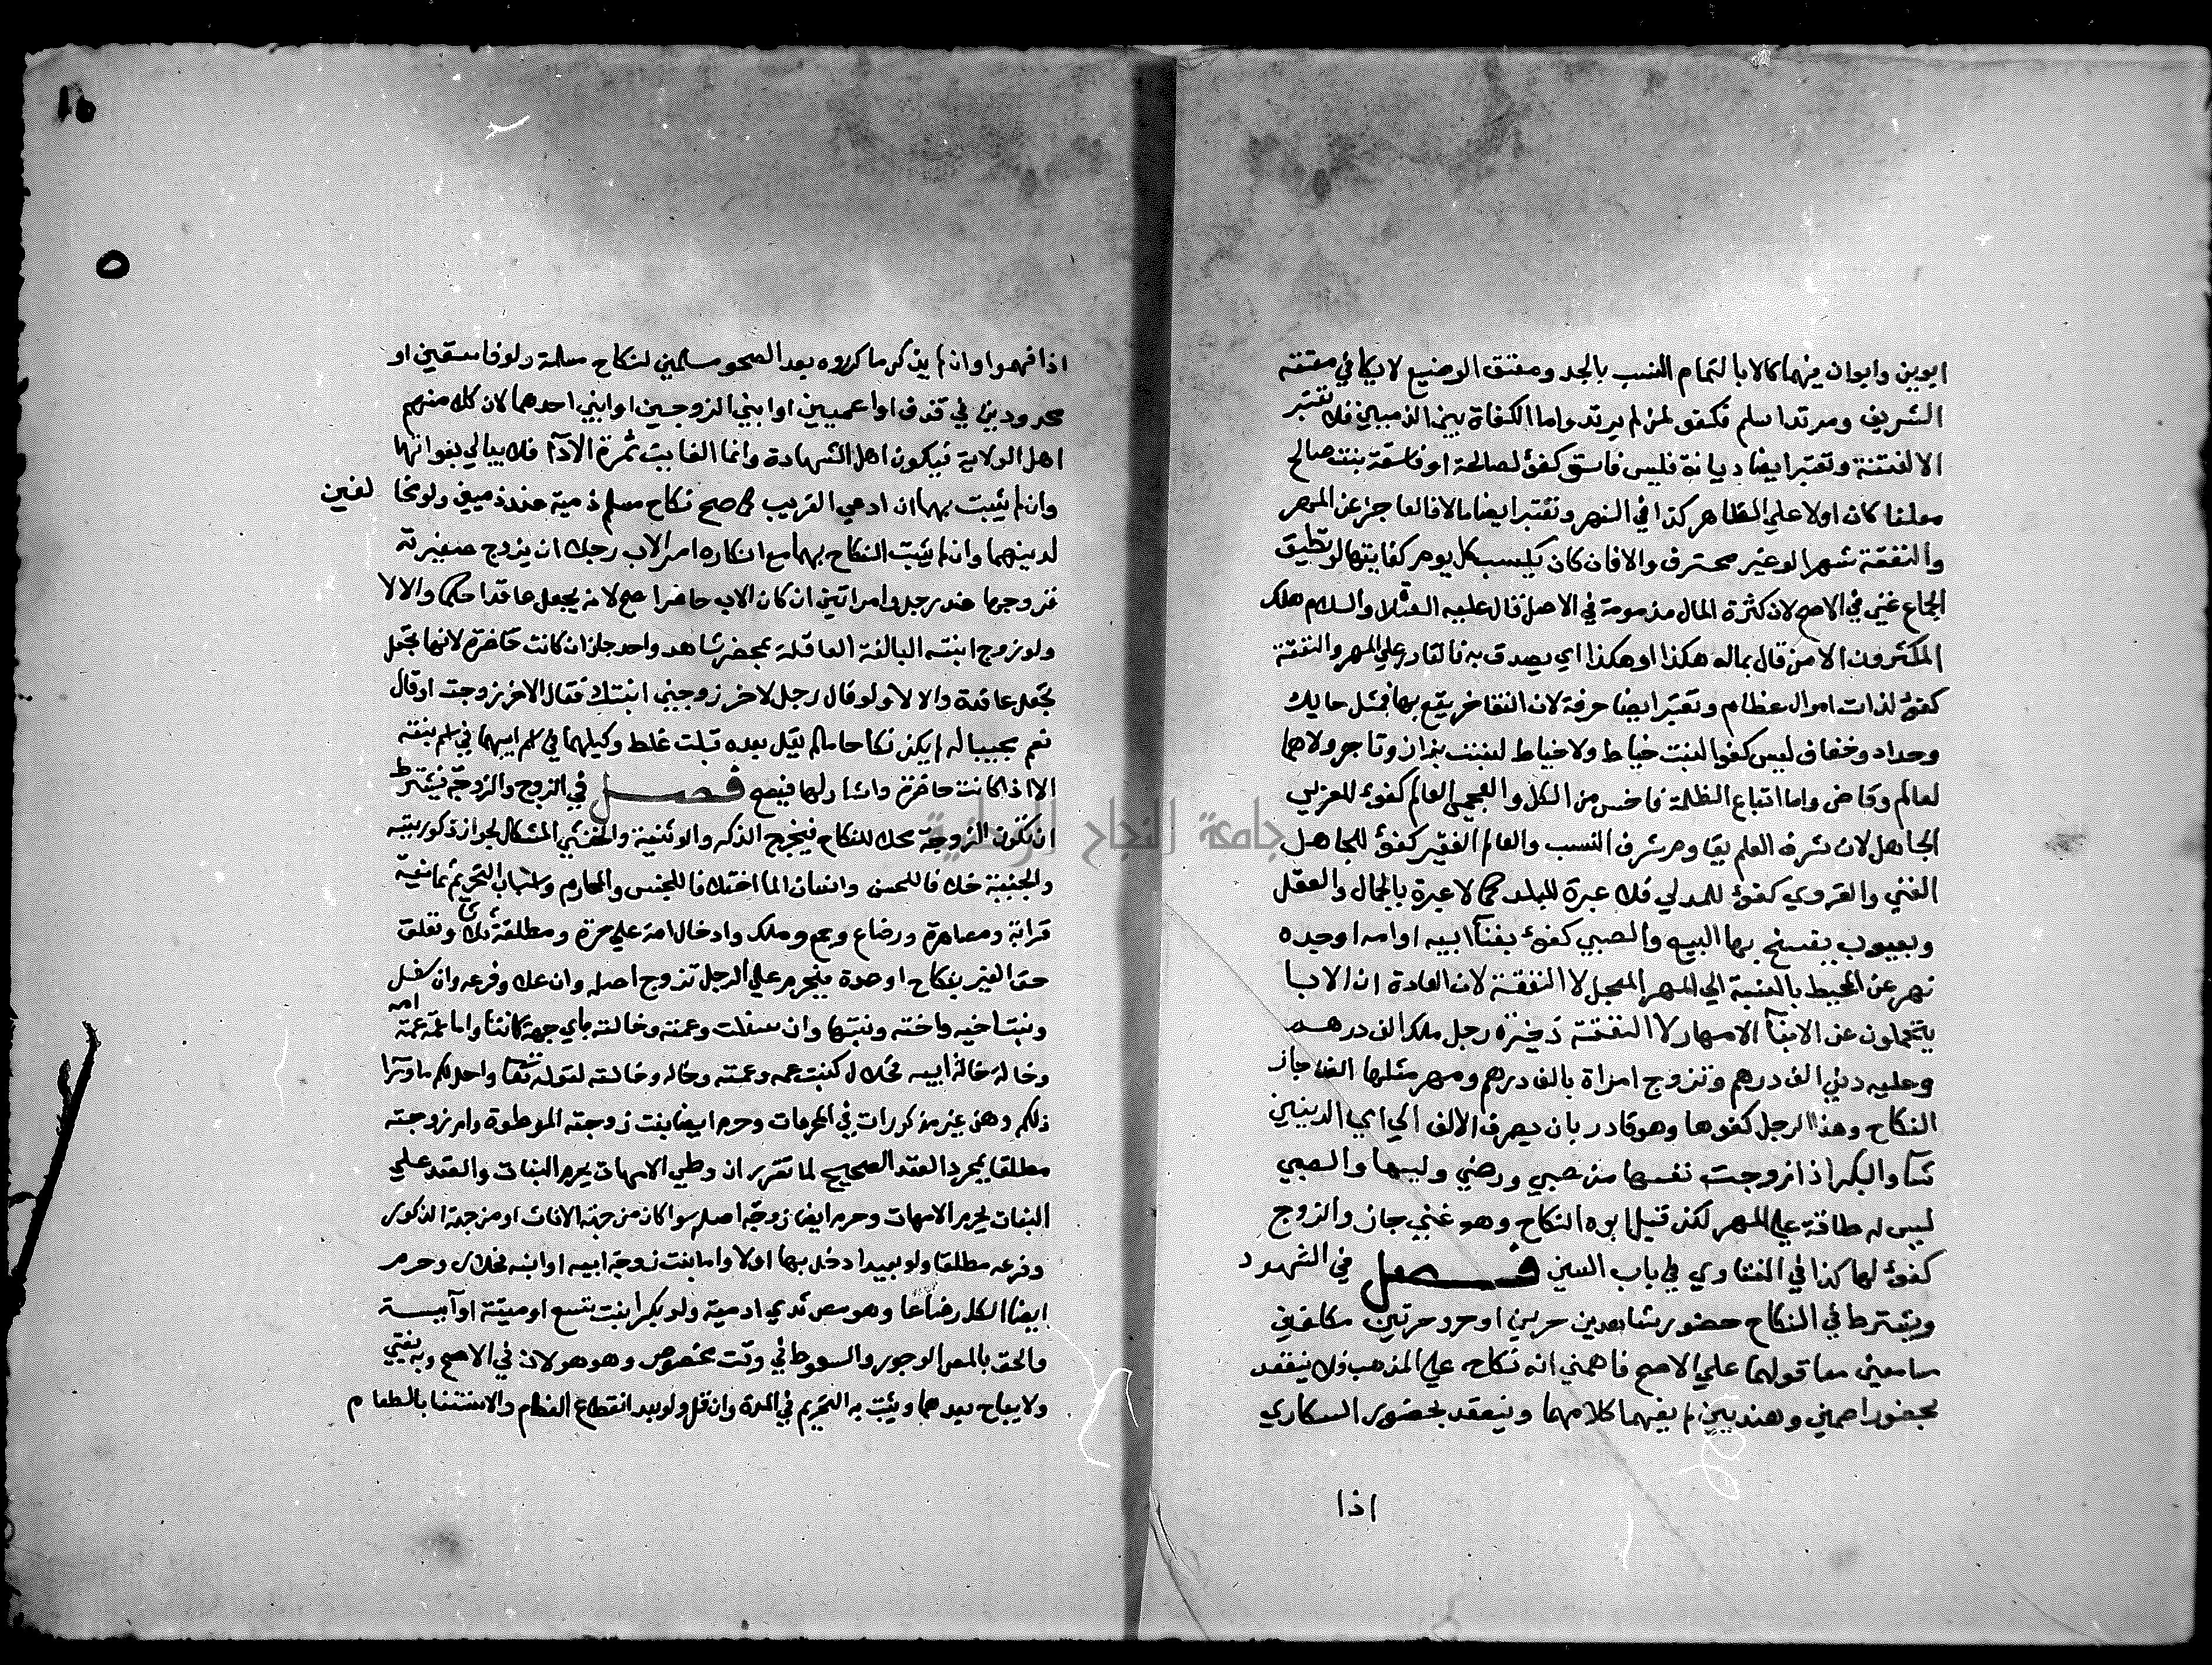 ابوين وابوان فيهما كالابا لتمام النسب بالجد ومعتق الوضيع لا يكافي معتقة
الشريف ومرتد اسلم فكفو لمن لم يرتد واما الكفاة بين الذميين فلا تعتبر
الا لفتنة وتعتبر ايضا ديانة فليس فاسق كفؤ لصالحة او فاسقة بنت صالح
معلنا كان اولا علي الظاهر كذا في النهر وتعتبر ايضا مالا فالعاجز عن المهر
والنفقة شهرا لو غير محترف والا فان كان يكسب كل يوم كفايتها لو تطيق
الجماع غني في الاصح لان كثرة المال مذمومة في الاصل قال عليه الصلاة والسلام هلك
المكثرون الا من قال بماله هكذا او هكذا اي يصدق به فالقادر علي المهر والنفقة
كفؤ لذات اموال عظام وتعتبر ايضا حرفة لان التفاخر يقع بها فمثل حايك
وحداد وخفاف ليس كفوا لبنت خياط ولا خياط لبنت بزاز وتاجر ولا هما
لعالم وقاض واما اتباع الظلمة فاخس من الكل والعجمي العالم كفوء للعربي
الجاهل لان شرف العلم يقاوم شرف النسب والعالم الفقير كفؤ للجاهل
الغني والقروي كفؤ للمدني فلا عبرة للبلد كما لا عبرة بالجمال والعقل
وبعيوب يفسخ بها البيع والصبي كفوء بغنآ ابيه او امه او جده
نهر عن المحيط بالنسبة الي المهر المعجل لا النفقة لان العادة ان الابا
يتحملون عن الابنآ الامهار لا النفقة ذخيرة رجل ملك الف درهم
وعليه دين الف درهم وتزوج امراة بالف درهم ومهر مثلها الف جاز
النكاح وهذا الرجل كفوها وهو قادر بان يصرف الالف الي اي الدينين
شآ والبكر اذا زوجت نفسها من صبي ورضي وليها والصبي
ليس له طاقة علي المهر لكن قبل ابوه النكاح وهو غني جاز والزوج
كفؤ لها كذا في الفتاوي في باب السين فصل في الشهود
ويشترط في النكاح حضور شاهدين حرين او حر وحرتين مكلفين
سامعين معا قولهما علي الاصح فاهمين انه نكاح علي المذهب فلا ينعقد
بحضور اصمين وهنديين لم يفهما كلامهما وينعقد بحضور السكاري
اذا
اذا فهموا وان لم يذكر ما كرروه بعد الصحو مسلمين لنكاح مسلمة ولو فاسقين او
محدودين في قذف او اعميين او ابني الزوجين او ابني احدهما لان كلا منهم
اهل الولاية فيكون اهل الشهادة وانما الغايب ثمرة الادآ فلا يبالي بفواتها
وان لم يثبت بهما ان ادعي القريب كما صح نكاح مسلم ذمية عند ذميين ولو مخا لفين
لدينهما وان لم يثبت النكاح بهما مع انكاره امر الاب رجلا ان يزوج صغيرته
فزوجها عند رجل وامراتين ان كان الاب حاضرا صح لانه يجعل عاقدا حكما والا لا
ولو زوج ابنته البالغة العاقلة بمحضر شاهد واحد جاز ان كانت حاضرة لانها تجعل
تجعل عاقدة والا لا ولو قال رجل لاخر زوجيني ابنتك فقال الاخر زوجت او قال
نعم مجيبا له لم يكن نكاحا مالم يقل بعده قبلت غلط وكيلهما في اسم ابيهما في اسم بنته
الا اذا كانت حاضرة واشار لها فيصح فصل في الزوج والزوجة فيشترط
ان تكون الزوجة محلا للنكاح فيخرج الذكر والوثنية والخنثي المشكل لجواز ذكوريته
والجنية خلافا للحسن وانسان الما اختلافا للجنس والمحارم واسباب التحريم ثمانية
قرابة ومصاهرة ورضاع وجمع وملك وادخال امة علي حرة ومطلقة ثلاثا وتعلق
حق الغير بنكاح او عدة فيحرم علي الرجل تزوج اصله وان علا وفرعه وان سفل
وبنت اخيه واخته وبنتها وان سفلت وعمته وخالته باي جهة كانتا واما عمة عمة امه
وخالة خالة ابيه فحلال كبنت عمه وعمته وخاله وخالته لقوله تعا واحل لكم ما ورا
ذلكم وهن غير مذكورات في المحرمات وحرم ايضا بنت زوجته الموطوة وام زوجته
مطلقا بمجرد العقد الصحيح لما تقرر ان وطي الامهات يحرم البنات والعقد علي
البنات يحرم الامهات وحرم ايضا زوجة اصله سوا كان من جهة الاناث او من جهة الذكور
وفرعه مطلقا ولو بعيدا دخل بها او لا واما بنت زوجة ابيه او ابنه فحلال وحرم
ايضا الكل رضاعا وهو مص ثدي ادمية ولو بكرا بنت تسع او ميتة او آيسة
والحق بالمص الوجور والسعوط في وقت مخصوص وهو حولان في الاصح وبه يفتي
ولا يباح بعدهما ويثبت به التحريم في المدة وان قل ولو بعد انقطاع الفطام والاستغنا بالطعام
جامعة النجاح الوطنية